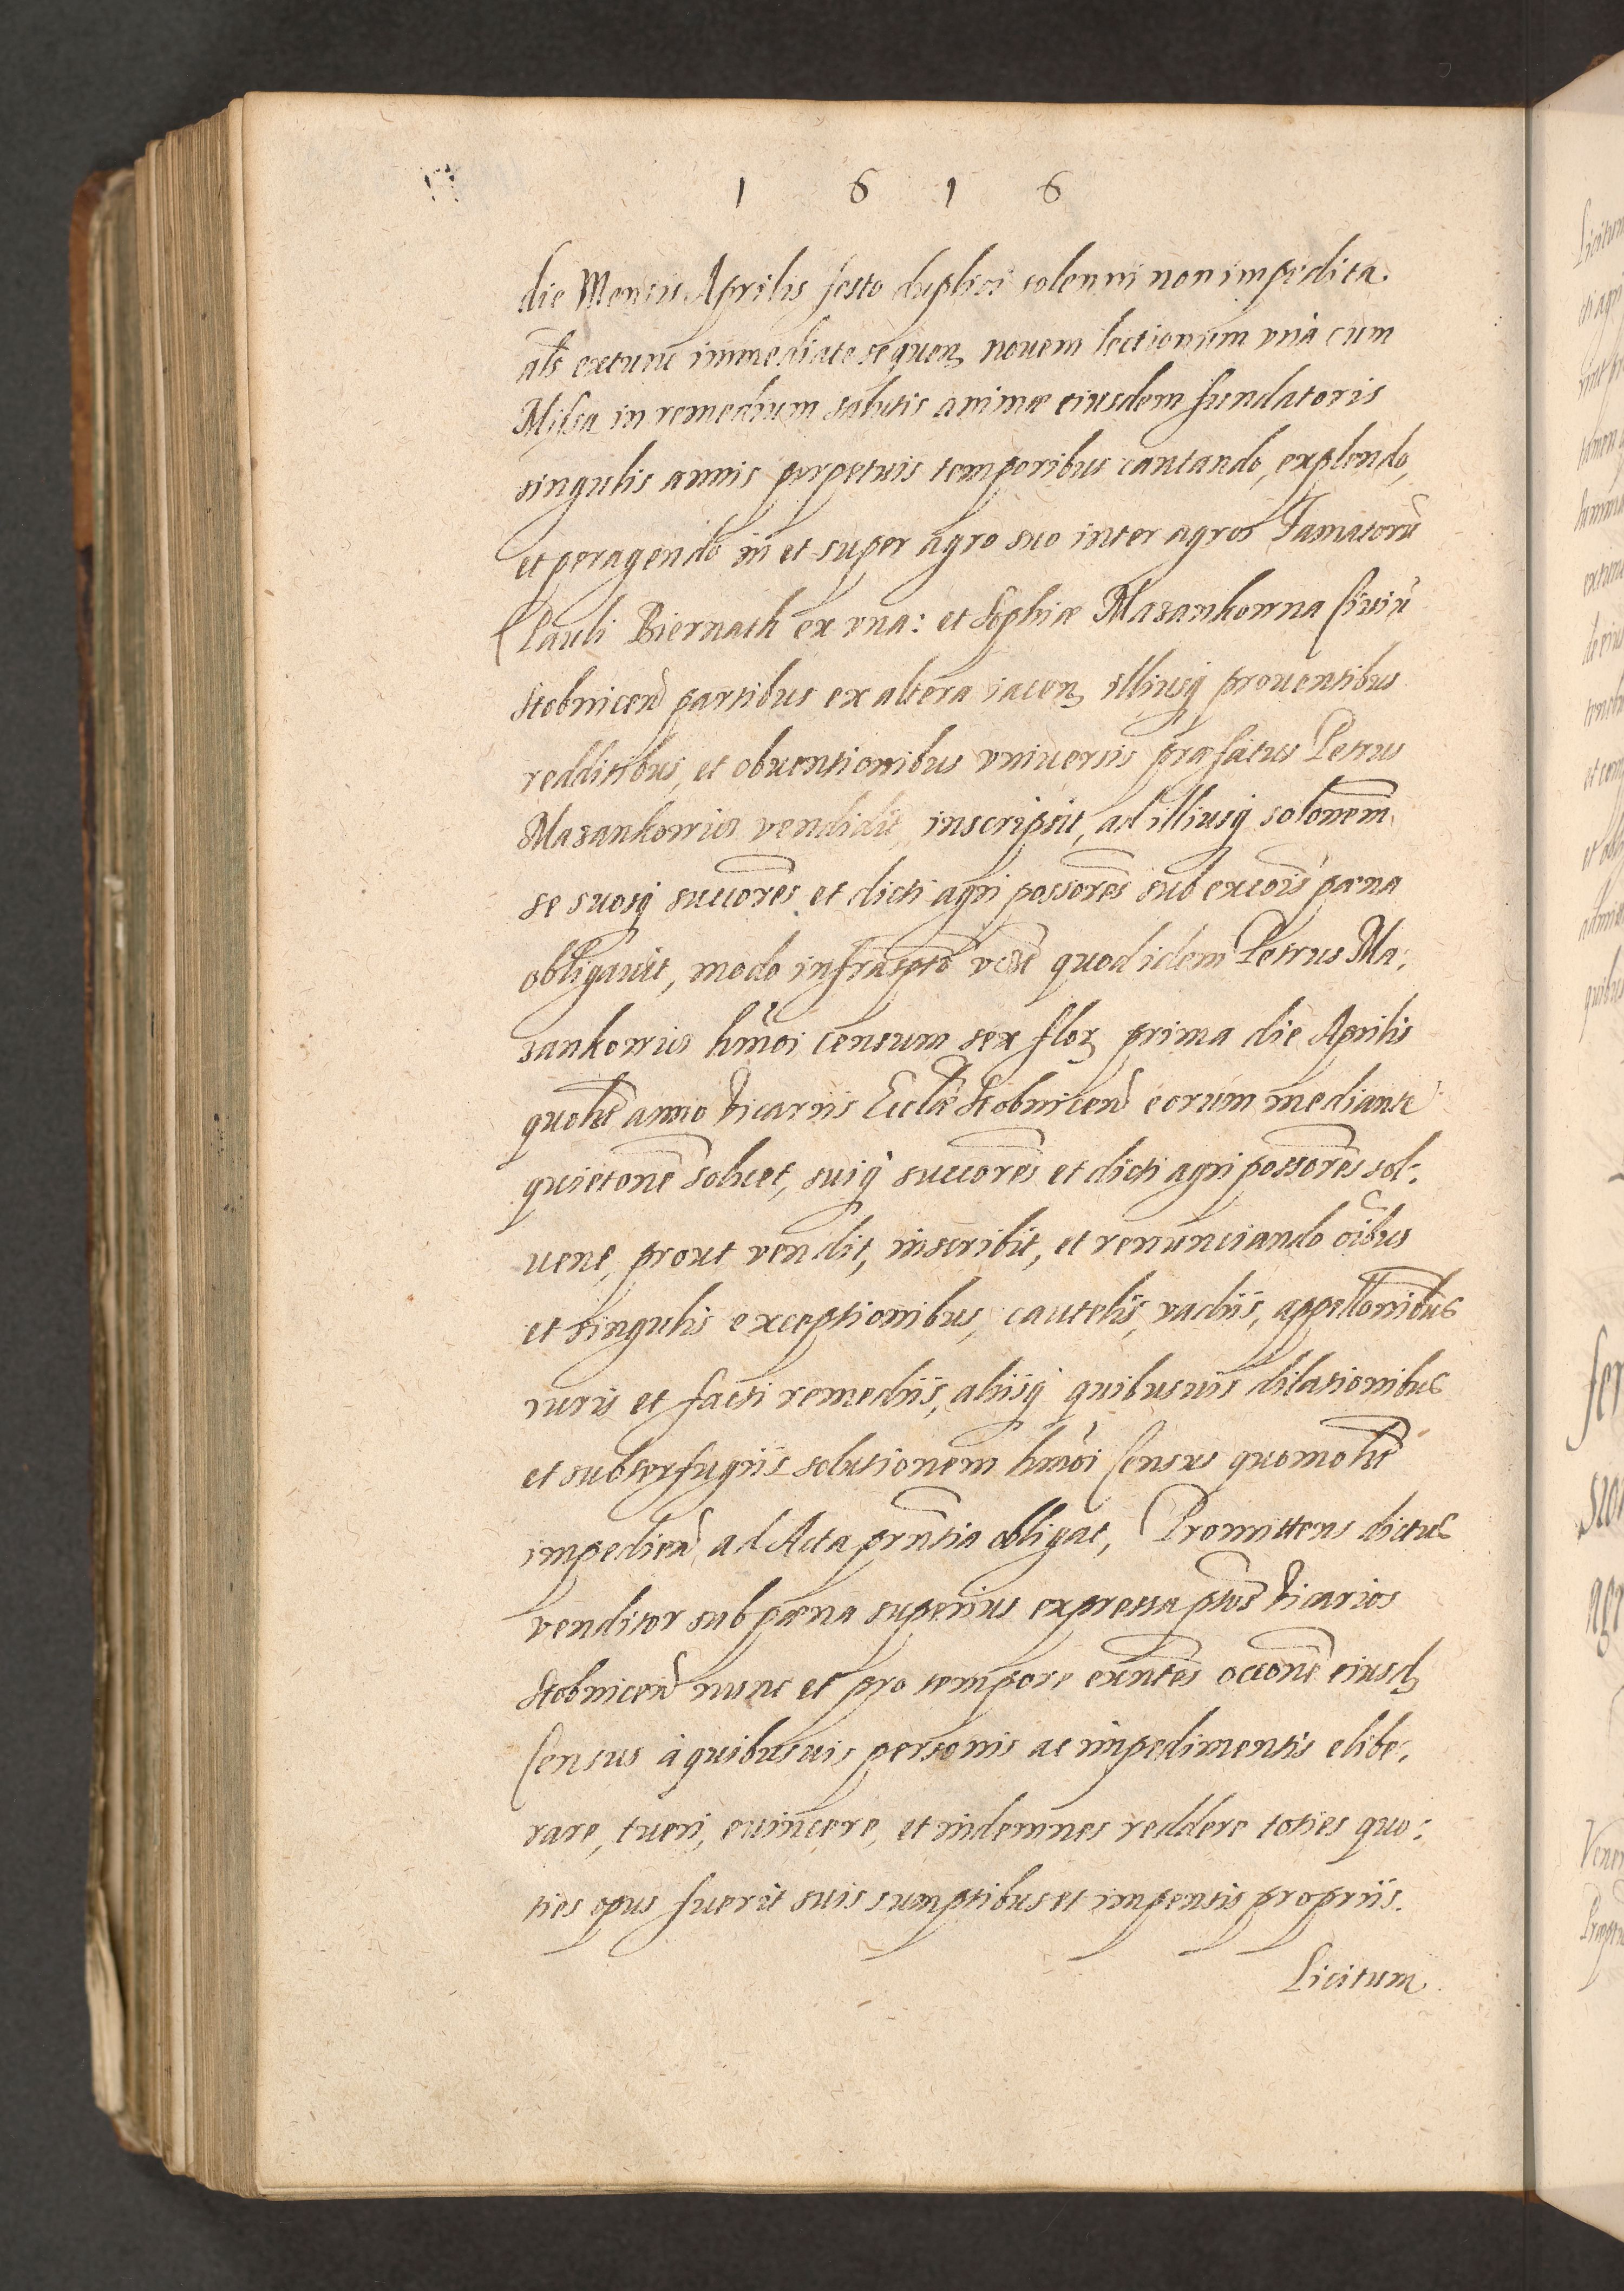 1 6 1 6
die Mensis Aprilis festo duplici solenni non impedita.
als extunc immediate sequen. nouem lectionum vnà cum
Missa in remedium salutis animæ eiusdem fundatoris
singulis annis perpetuis temporibus cantando, explendo,
et peragendo in et super agro suo inter agros Famatorũ
Pauli Biernath ex vna: et Sophiæ Mazankowna Ciuiũ
Stobnicen̄ partibus ex altera iacen. illiusq́ prouentibus
redditibus, et obuentionibus vniuersis præfatus Petrus
Mazankowius vendidit, inscripsit, ad illiusq́ solōnem
se suosq́ succōres et dicti agri possōres sub excōis pœna
obligauit, modo infrascpto vidt quod idem Petrus Ma:
zankowius hmōi censum sex flor. prima die Aprilis
quolt anno Vicariis Ecclæ Stobnicen̄ eorum mediante
quietōne soluet, suiq́ succōres et dicti agri possōres sol:
uent, prout vendit, inscribit, et renunciando oībus
et singulis exceptionibus, cautelis, vadiis, appellōnibus
iuris et facti remediis, aliisq́ quibusuis dilationibus
et subterfugiis solutionem hmōi Census quomolt
impedien̄, ad Acta prñtia obligat, Promittens dictus
venditor sub pœna superius expressa ptos Vicarios
Stobnicen̄ nunc et pro tempore exñtes occōne eiusd.
Census à quibusuis personis ac impedimentis elibe:
rare, tueri, euincere, et indemnes reddere toties quo:
ties opus fuerit suis sumptibus et impensis propriis.
Licitum